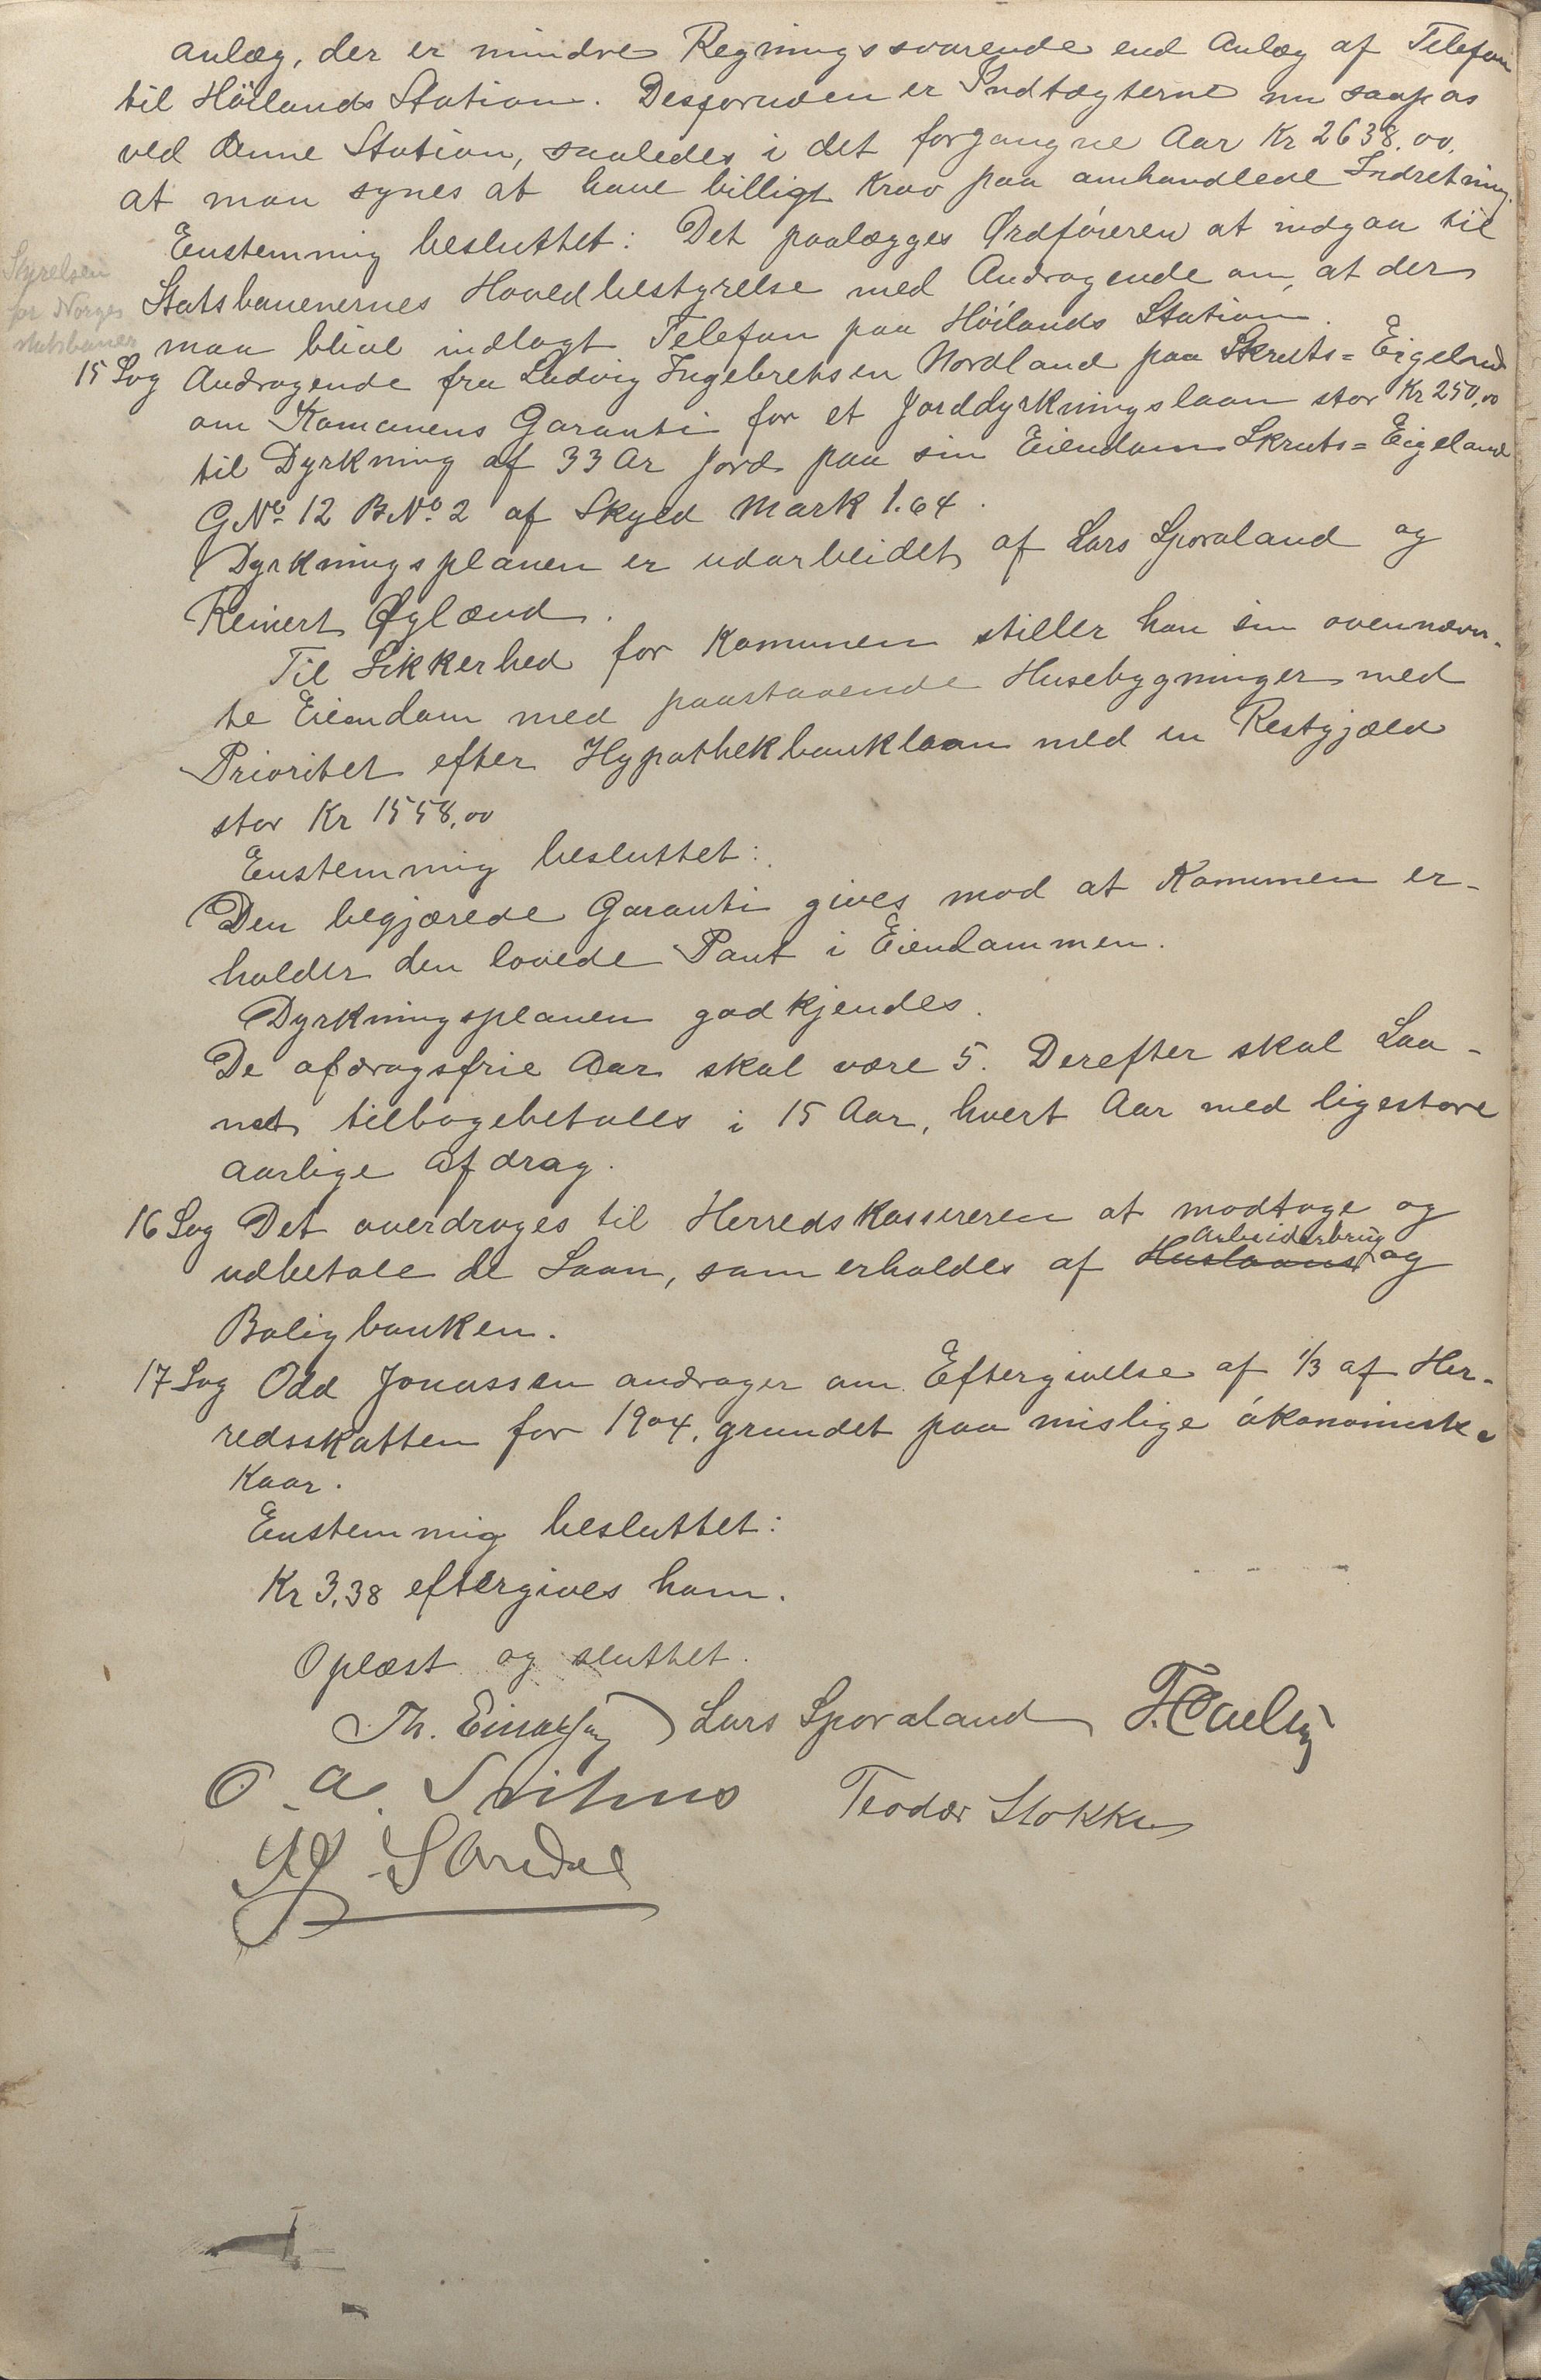 anlæg, der er mindre Regningssvarende end Anlæg af Telefon
til Höilands Station. Desforuden er Indtægterne nu saapas
ved denne Station, saaledes i det forgangne Aar Kr 2638.00.
at man synes at have billigt Krav paa omhandlede Indretning.
Enstemmig besluttet: Det paalægges Ordföreren at indgaa til
Styrelsen
for Norges
statsbaner
Statsbanenernes Hovedbestyrelse med Andragende om, at der
maa blive indlagt Telefon paa Höilands Station.
15 Sag Andragende fra Ludvig Ingebretsen Nordland paa Skruts=Eigeland
om Komunens Garanti for et Jorddyrkningslaan stor Kr 250,00
til Dyrkning af 33 Ar Jord paa sin Eiendom Skruts=Eigeland
GNo. 12 BNo. 2 af Skyld Mark 1.64.
Dyrkningsplanen er udarbeidet af Lars Sporaland og
Reinert Øglænd.
Til Sikkerhed for Komunen stiller han sin ovennævn-
te Eiendom med paastaaende Husebygninger med
Prioritet efter Hypothekbanklaan med en Restgjæld
stor Kr 1558,00
Enstemmig besluttet:
Den begjærede Garanti gives mod at Komunen er-
holder den lovede Pant i Eiendommen.
Dyrkningsplanen godkjendes.
De afdragsfrie Aar skal være 5. Derefter skal Laa-
net tilbagebetales i 15 Aar, hvert Aar med ligestore
aarlige Afdrag.
16 Sag Det overdrages til Herredskassereren at modtage og
Arbeiderbrug
udbetale de Laan, som erholdes af Huslaans og
Boligbanken.
17 Sag Odd Jonassen andrager om Eftergivelse af 1/3 af Her-
redsskatten for 1904, grundet paa mislige ökonomiske
Kaar.
Enstemmig besluttet:
Kr 3,38 eftergives ham.
Oplæst og sluttet.
Th. Lars Sporaland
O. A. Teodor Stokka